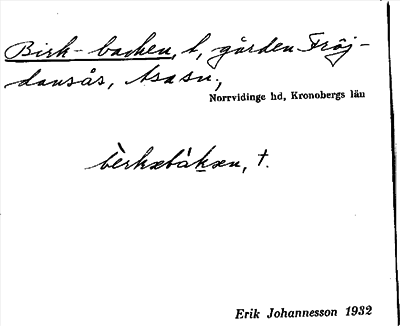 Birk-backen, l, gården Fröj-
dansås, Asa sn;
Norrvidinge hd, Kronobergs län
bèrkæbàkæn, †.
Erik Johannesson 1932